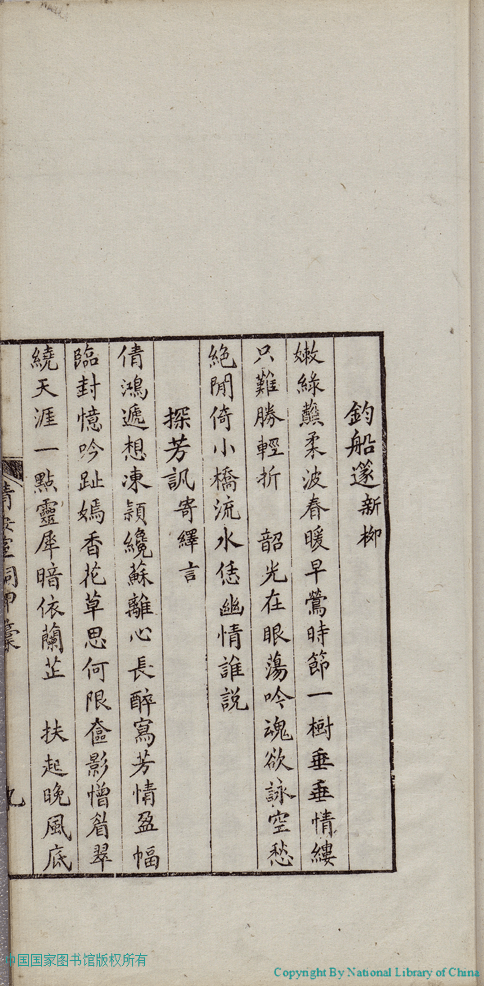 釣船邃新柳
嫩綠蘸柔波春暖早鶯時節一樹垂垂情縷
只難勝輕折　韶光在眼蕩吟魂欲詠空愁
絕閒倚小橋流水恁幽情誰説
探芳訊寄繹言
倩鴻遞想凍穎纔蘇離心長醉寫芳情盈幅
臨封憶吟趾嫣香花草思何限奩影憎眉翠
繞天涯一點靈犀暗依蘭芷　扶起晚風底
詞甲稾
九
中国国家图书馆版权所有
Copyright By National Library of China